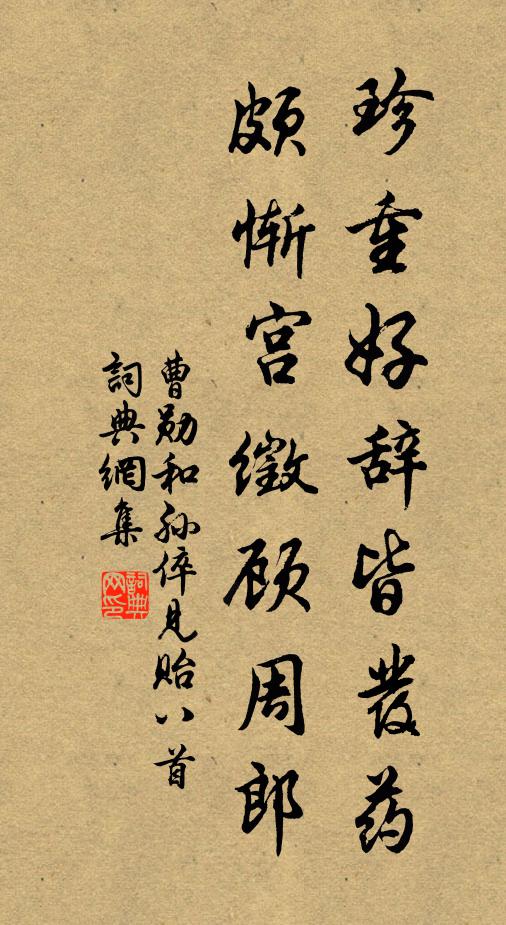 珍重好辞皆發药
颇惭宫徵顾周郎
曹勋和孙倅见贻八首
詞典網集
詞典网印